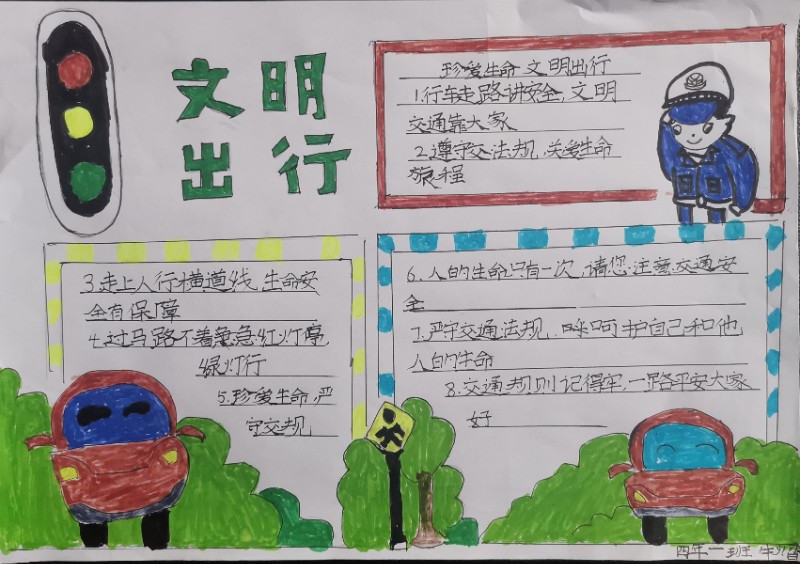 文明
出行
珍爱生命 文明出行
1.行车走路讲安全,文明
交通靠大家
2.遵守交法规,关爱生命
旅程
3.走上人行横道线,生命安
全有保障
4.过马路不着急,红灯停
绿灯行
5.珍爱生命,严
守交规
6.人的生命只有一次,请您注意交通安
全
7.严守交通法规,呵护自己和他
人的生命
8.交通规则记得牢,一路平安大家
好
四年一班